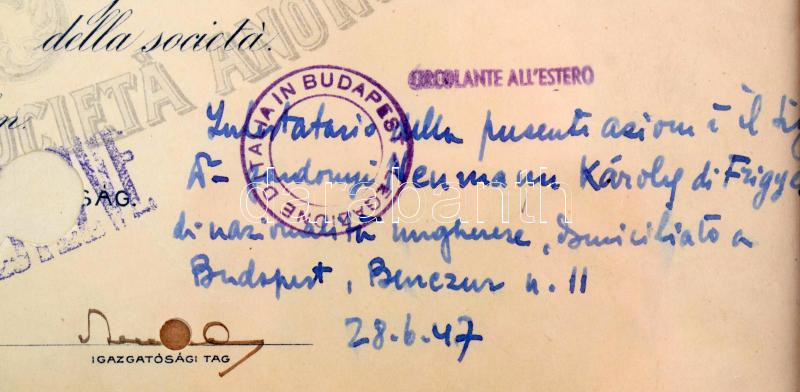 della società.
SOCIETÀ ANON
CIRCOLANTE ALL'ESTERO
LEGAZIONE D'ITALIA IN BUDAPEST
Intestatario della presenti azioni è il
Neumann Károly di Frigye
SÁG.
di nazionalità ungherese, domiciliato a
Budapest, Benczur n. 11
28.6.47
IGAZGATÓSÁGI TAG
darabanth